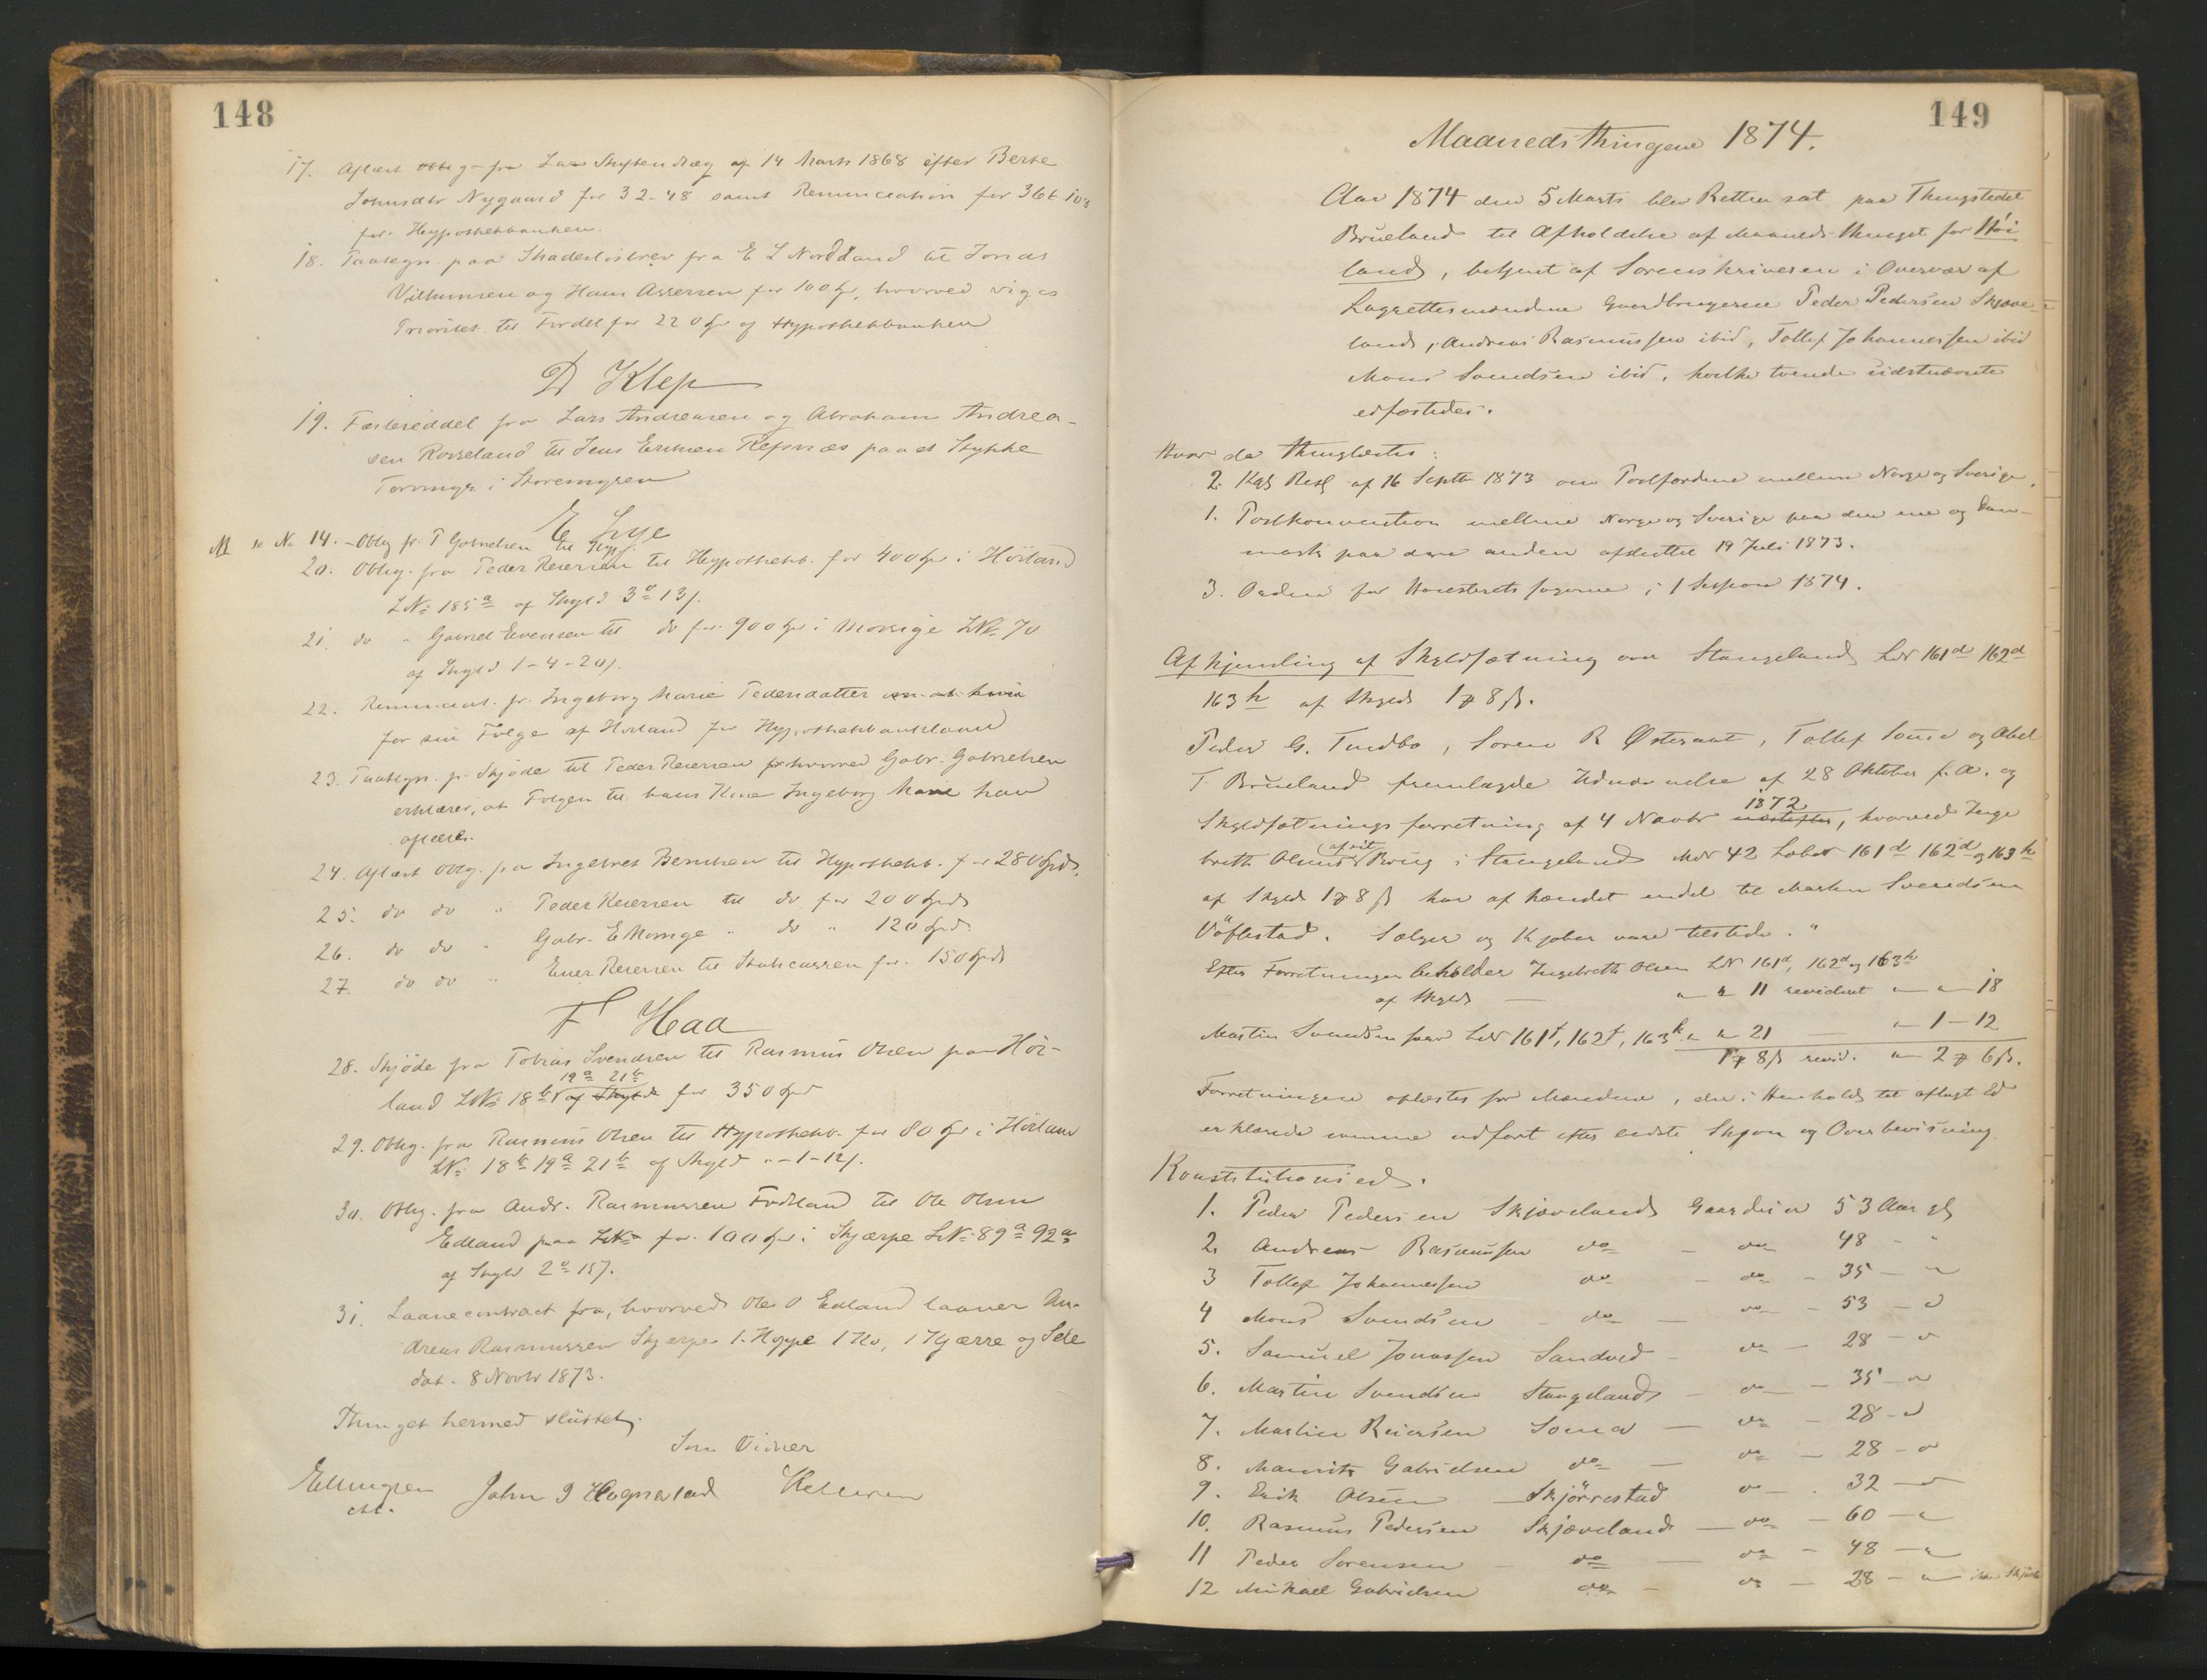 148
17. Aflæst Oblig fra Lars Skiftendræg af 14 Marts 1868 efter Berte
Johnsdtr Nygaard for 32-48 samt Renunceation for 36 10
for Hypothekbanken.
18. Paategn. paa Skadesløsbrev fra E L Nordland til Jonas
Vilhumsen og Hans Assersen for 100 , hvorved viges
Prioritet til Fordel for 220 of Hypothekbanken
D Klep
19. Fæsteseddel fra Lars Andreasen og Abraham Andrea-
sen Rosseland til Jens Ericksen Refsnæs paa et Stykke
Torvmyr i Storemyren
E Lye
No 14. - Oblig fr. T Gabrielsen til Hyp.
20. Oblig. fra Peder Reiersen til Hypothekb. for 400 i Hörland
LNo 185a af Skyld 3 13 .
21. do " Gabriel Evensen til do for 900 i Morsige LNo 70
af Skyld 1-4-20 .
22. Renunceat. fr. Ingeborg Marie Pedersdatter
for sin Følge af Hörland for Hypothekbanklaanet
23. Paategn. p. Skjöde til Peder Reiersen hvorved Gabr. Gabrielsen
erklærer, at Følgen til hans Kone Ingeborg Marie har
aflæst.
24. Aflæst Oblig. fra Ingebret Berntsen til Hypothekb. for 280
25. do do " Peder Reiersen til do for 200
26. do do " Gabr. E Morsige " do " 120
27. do do " Ener Reiersen til Statscassen for 150
F Haa
28. Skjöde fra Tobias Svendsen til Rasmus Olsen paa Hör-
19a 21b
land LNo 18b af Skyld for 350
29. Oblig. fra Rasmus Olsen til Hypothekb. for 80 i Hörland
LNo 18b 19a 21b af Skyld " -1-12 .
30. Oblig. fra Andr. Rasmussen Fodland til Ole Olsen
Edland paa LNo for 100 i Skjærpe LNo 89a 92a
af Skyld 2 .
31. Laanecontract fra, hvorved Ole O Edland laaner An-
dreas Rasmussen Skjærpe 1 Hoppe 1 Ko, 1 Kjærre og Sele
dat. 8 Novbr 1873.
Thinget hermed sluttet.
Som Vidner
Ellingsen John J Hognestad
cst.
149
Maanedsthingene 1874.
Aar 1874 den 5 Marts blev Retten sat paa Thingstedet
Brueland til Afholdelse af Maaneds-thinget for Höi
land, betjent af Sorenskriveren i Overvær af
Lagrettesmændene Gaardbrugerne Peder Pedersen Skjæve-
land, Andreas Rasmussen ibid, Tollef Johannessen ibid
Mons Svendsen ibid, hvilke tvende sidstnævnte
edfæstedes.
Hvor da thinglæstes:
2. Kgl Resl af 16 Septbr 1873 om Postførdene mellem Norge og Sverige.
1. Postkonvention mellem Norge og Sverige paa den ene og Dan-
mark paa den anden afsluttet 19 Juli 1873.
3. Orden for Høiesteretssagerne i 1 Session 1874.
Afhjemling af Skyldsætning over Stangeland LNr 161d 162d
163h af Skyld 1 8 .
Peder G. Tindbo, Soren R Østeraat, Tollef Somme og Abel
T. Brueland fremlagde Udnævnelse af 28 Oktober f. A. og
1872
Skyldsætningsforretning af 4 Novbr næstefter, hvorved Inge
af sit
breth Olsens Brug i Stangeland MNr 42 LøbNr 161d 162d og 163h
af Skyld 1 8 har afhændet endel til Martin Svendsen
Vöflestad. Sælger og Kjøber vare tilstede. "
Efter Forretningen beholder Ingebreth Olsen LNr 161d, 162d og 163h
af Skyld — " " 11 revideret " " 18
Martin Svendsen faar LNr 161f, 162f, 163k " " 21 — " 1-12
1 8 revid. " 2 6 .
Forretningen oplæstes for Mændene, der i Henhold til aflagt Ed
erklærede samme udført efter bedste Skjøn og Overbevisning
Konstitutionsed.
1. Peder Pedersen Skjæveland Gaardeier 53 Aar gl
2. Andreas Rasmussen do — do 48 - "
3 Tollef Johannessen do — do — 35 — "
4 Mons Svendsen do — do — 53 — "
5. Samuel Jonassen Sandved — do — 28 — "
6. Martin Svendsen Stangeland — do — 35 — "
7. Martin Reiersen Soma — do — 28 — "
8. Mauritz Gabrielsen do — do — 28 — "
9. Erik Olsen Skjörrestad do — 32 — "
10. Rasmus Pedersen Skjæveland — do — 60 — "
11 Peder Sorensen — do — do — 48 — "
12 Mikael Gabrielsen do — do — 28 — "